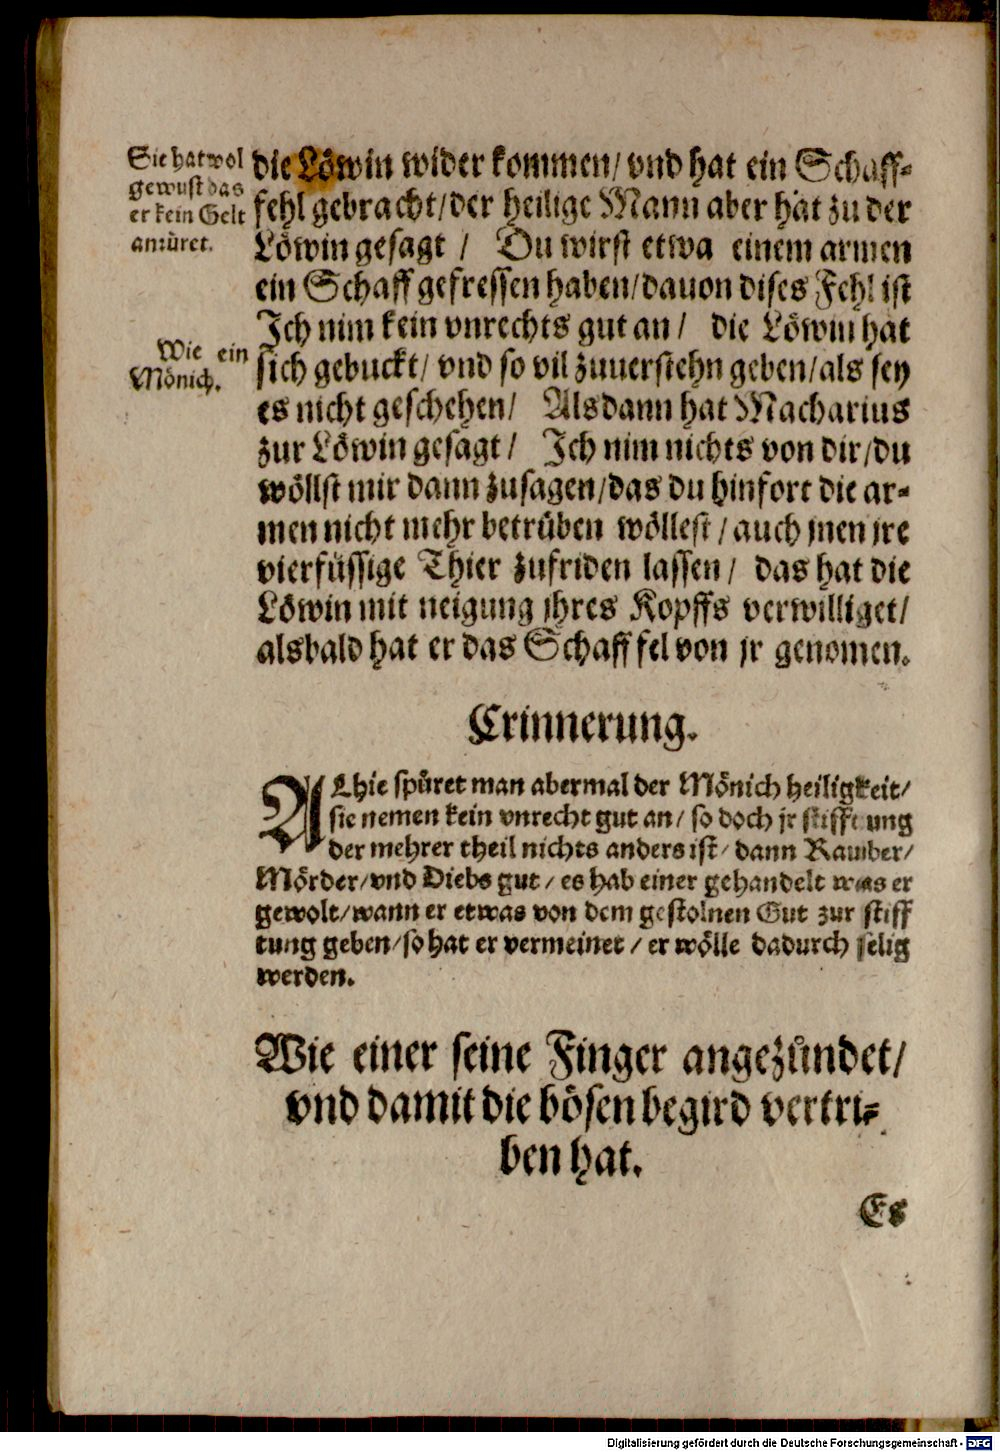 Sie hat wol
gewust das
er kein Gelt
anrüret.
die Löwin wider kommen/ vnd hat ein Schaff-
fehl gebracht/ der heilige Mann aber hat zu der
Löwin gesagt / Du wirst etwa einem armen
ein Schaff gefressen haben/ dauon dises Fehl ist
Ich nim kein vnrechts gut an / die Löwin hat
Wie ein
Mönich.
sich gebuckt/ vnd so vil zuuerstehn geben/ als sey
es nicht geschehen/ Alsdann hat Macharius
zur Löwin gesagt / Ich nim nichts von dir/ du
wöllst mir dann zusagen/ das du hinfort die ar-
men nicht mehr betrüben wöllest / auch jnen jre
vierfüssige Thier zufriden lassen / das hat die
Löwin mit neigung jhres Kopffs verwilliget/
alsbald hat er das Schaff fel von jr genomen.
Erinnerung.
Alhie spüret man abermal der Mönich heiligkeit/
sie nemen kein vnrecht gut an / so doch jr stifft ung
der mehrer theil nichts anders ist / dann Rauber/
Mörder/ vnd Diebs gut / es hab einer gehandelt was er
gewolt/ wann er etwas von dem gestolnen Gut zur stiff
tung geben/ so hat er vermeinet / er wölle dadurch selig
werden.
Wie einer seine Finger angezündet/
vnd damit die bösen begird vertri-
ben hat.
Es
Digitalisierung gefördert durch die Deutsche Forschungsgemeinschaft - DFG